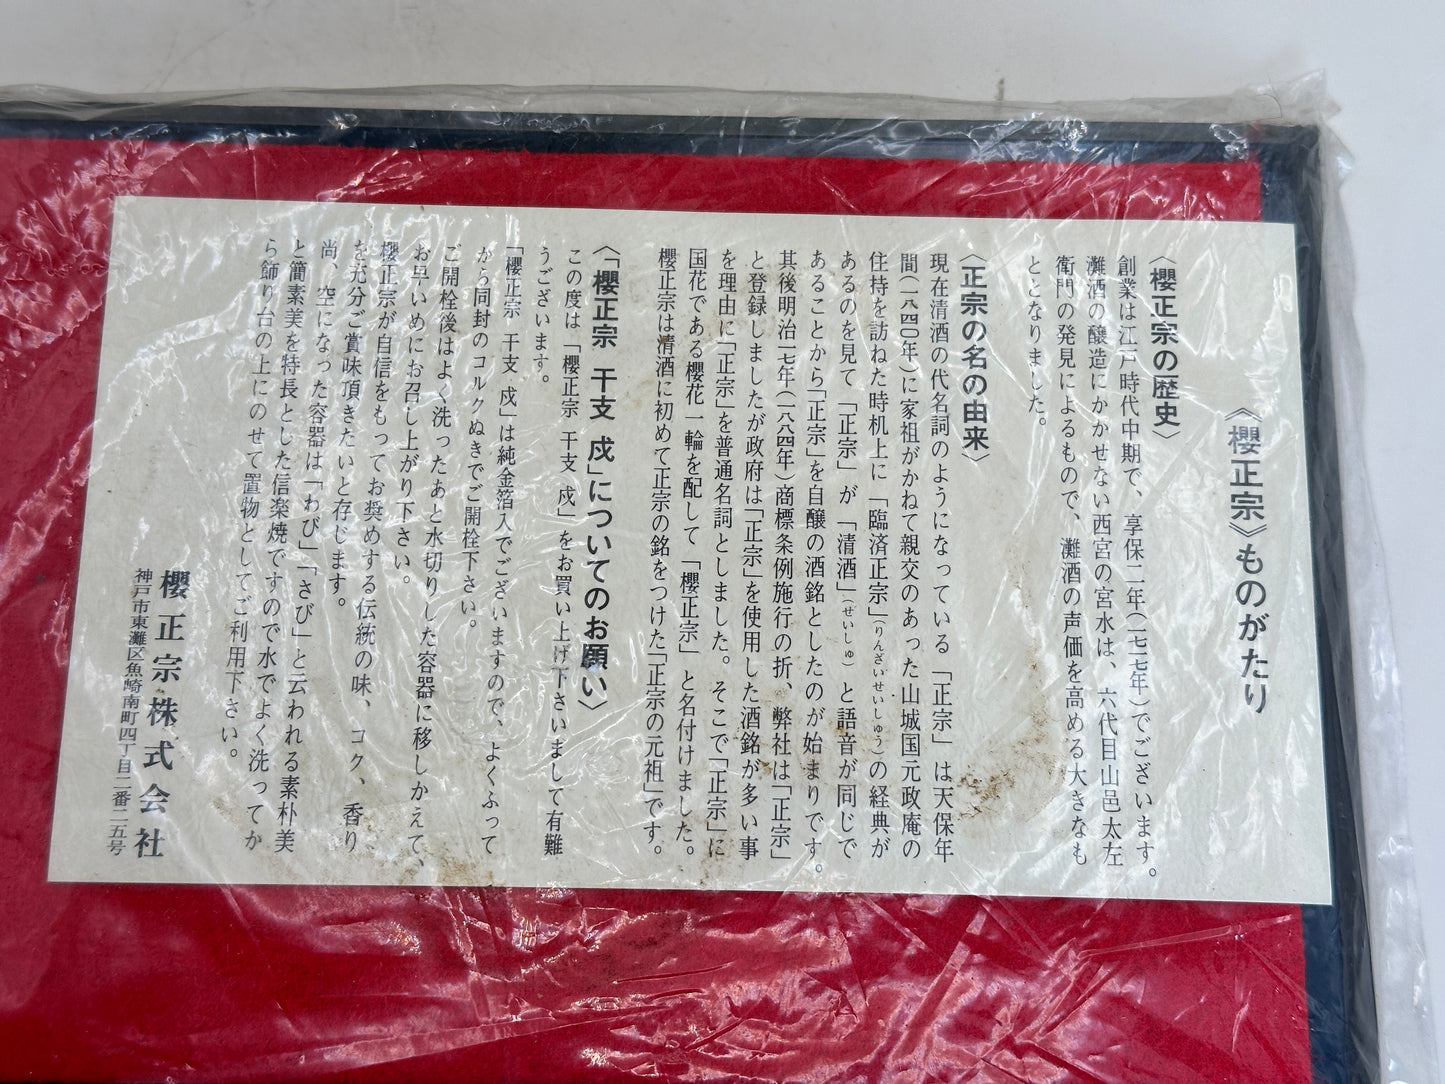 《櫻正宗》ものがたり
〈櫻正宗の歴史〉
創業は江戸時代中期で、享保二年(一七一七年)でございます。
灘酒の醸造にかかせない西宮の宮水は、六代目山邑太左
衛門の発見によるもので、灘酒の声価を高める大きなも
ととなりました。
〈正宗の名の由来〉
現在清酒の代名詞のようになっている「正宗」は天保年
間(一八四〇年)に家祖がかねて親交のあった山城国元政庵の
住持を訪ねた時机上に「臨済正宗」(りんざいせいしゅう)の経典が
あるのを見て「正宗」が「清酒」(せいしゅ)と語音が同じで
あることから「正宗」を自醸の酒銘としたのが始まりです。
其後明治一七年(一八八四年)商標条例施行の折、弊社は「正宗」
と登録しましたが政府は「正宗」を使用した酒銘が多い事
を理由に「正宗」を普通名詞としました。そこで「正宗」に
国花である櫻花一輪を配して「櫻正宗」と名付けました。
櫻正宗は清酒に初めて正宗の銘をつけた「正宗の元祖」です。
〈「櫻正宗 干支 戌」についてのお願い〉
この度は「櫻正宗 干支 戌」をお買い上げ下さいまして有難
うございます。
「櫻正宗 干支 戌」は純金箔入でございますので、よくふって
から同封のコルクぬきでご開栓下さい。
ご開栓後はよく洗ったあと水切りした容器に移しかえて、
お早いめにお召し上がり下さい。
櫻正宗が自信をもってお奨めする伝統の味、コク、香り
を充分ご賞味頂きたいと存じます。
尚、空になった容器は「わび」「さび」と云われる素朴美
と簡素美を特長とした信楽焼ですので水でよく洗ってか
ら飾り台の上にのせて置物としてご利用下さい。
櫻正宗株式会社
神戸市東灘区魚崎南町四丁目二番二五号